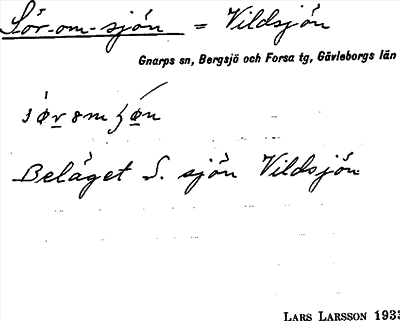 Sör-om-sjön = Vildsjön
Gnarps sn, Bergsjö och Forsa tg, Gävleborgs län
Beläget S. sjön Vildsjön
LARS LARSSON 1933